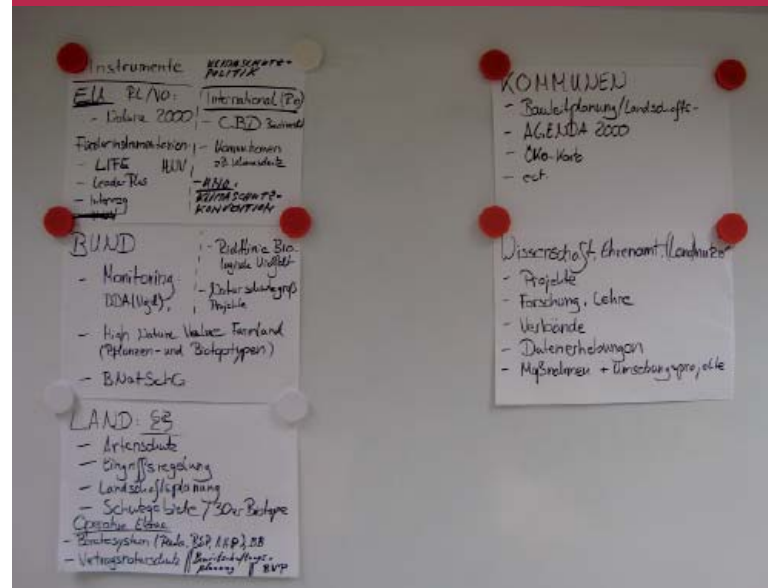 Instrumente
KLIMASCHUTZ-
POLITIK
EU RL/VO:
- Natura 2000
Förderinstrumentarien
- LIFE
- Leader Plus
- Interreg
International
- CBD
- Konventionen
z.B. Klimaschutz
- UNO-
KLIMASCHUTZ-
KONVENTION
BUND
- Monitoring
DDA (Vögel),
- High Nature Value Farmland
(Pflanzen- und Biotoptypen)
- BNatSchG
- Richtlinie Bio-
logische Vielfalt
- Naturschutzgroß
Projekte
LAND:
- Artenschutz
- Eingriffsregelung
- Landschaftsplanung
- Schutzgebiete / 30er Biotope
Operative Ebene
- Vertragsnaturschutz / Bewirtschaftungs-
planung / BVP
KOMMUNEN
- Bauleitplanung/Landschafts-
- AGENDA 2000
- Öko-Konto
- ect.
Wissenschaft, Ehrenamt, (Landnutzer
- Projekte
- Forschung, Lehre
- Verbände
- Datenerhebungen
- Maßnahmen + Umsetzungsprojekte